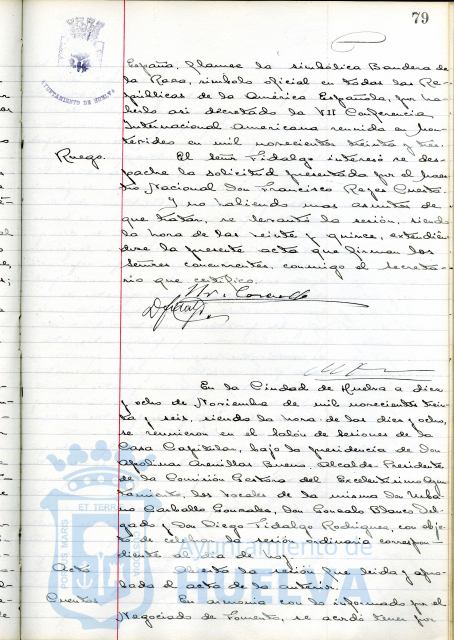 79
AYUNTAMIENTO DE HUELVA
España, flamee la simbólica Bandera de
la Raza, símbolo oficial en todas las Re-
públicas de la América Española, por ha-
berlo asi decretado la VII Conferencia
Internacional Americana reunida en Mon-
tevideo en mil novecientos treinta y tres.
Ruego.
El señor Fidalgo interesó se des-
pache la solicitud presentada por el Maes-
tro Nacional Don Francisco Reyes Cuesta.
Y no habiendo mas asuntos de
que tratar, se levantó la sesión, siendo
la hora de las veinte y quince, extendién-
dose la presente acta que firman los
señores concurrentes, conmigo el Secreta-
rio que certifico.
En la Ciudad de Huelva a diez
y ocho de Noviembre de mil novecientos trein-
ta y seis, siendo la hora de las diez y ocho,
se reunieron en el Salón de sesiones de la
Casa Capitular, bajo la presidencia de Don
Apolinar Arenillas Bueno, Alcalde-Presidente
de la Comisión Gestora del Excelentísimo Ayun-
tamiento, los Vocales de la misma Don Urba-
no Carballo Gonzalez, Don Gonzalo Blanco Del-
gado y Don Diego Fidalgo Rodriguez, con obje-
to de celebrar la sesión ordinaria correspon-
diente al dia de hoy.
Acta
Abierta la sesión fue leida y apro-
bada el acta de la anterior.
Cuentas.
En armonia con lo informado por el
Negociado de Fomento, se acordó tener por
PORTUS MARIS ET TERRAE
Ayuntamiento de
HUELVA